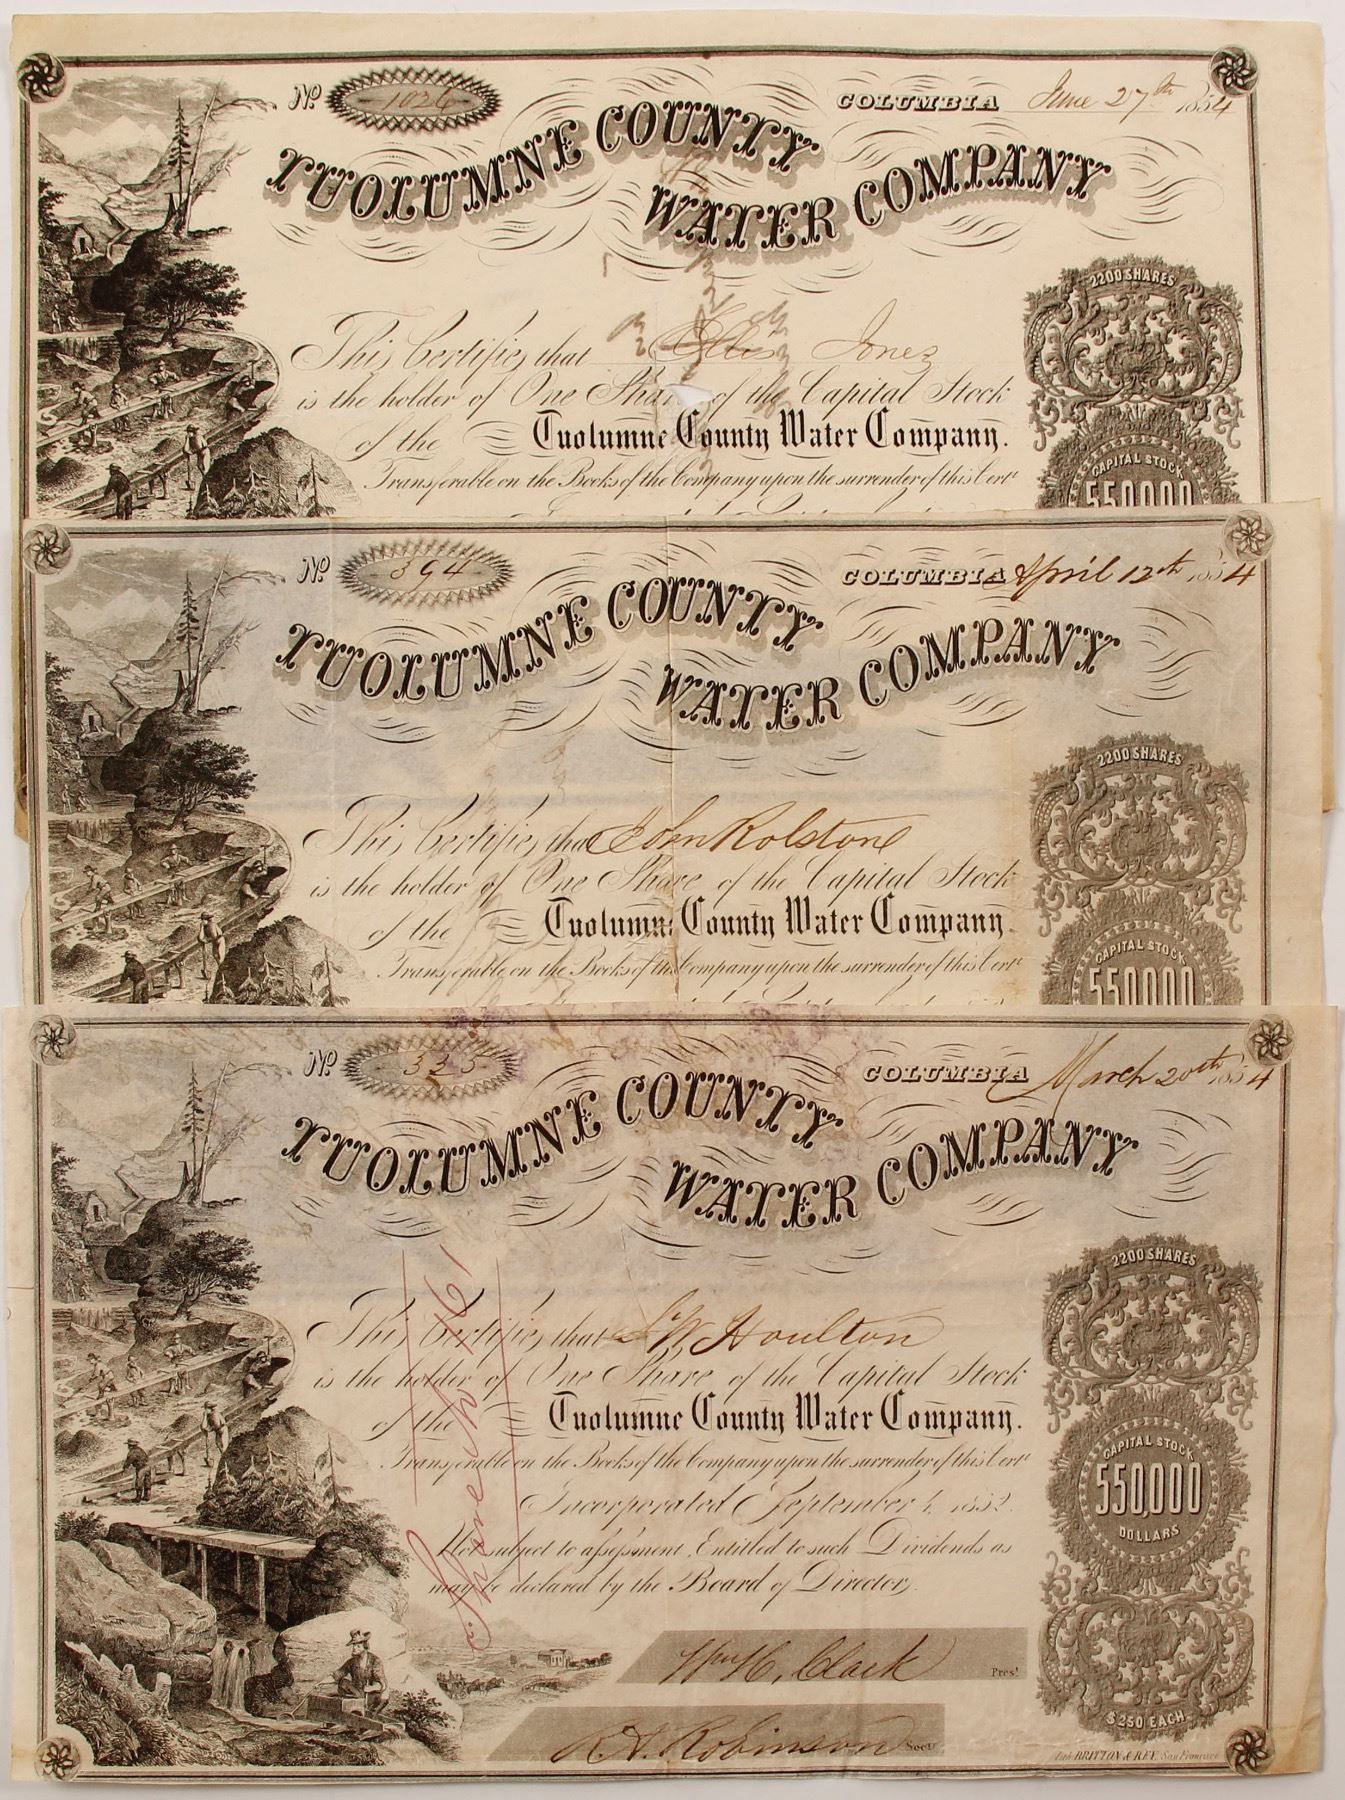 No 1026 COLUMBIA June 27th 1854
TUOLUMNE COUNTY
WATER COMPANY
2200 SHARES
This Certifies that Ellis Jones
is the holder of One Share of the Capital Stock
of the Tuolumne County Water Company.
Transferable on the Books of the Company upon the surrender of this Certt
CAPITAL STOCK
550,000
No 394 COLUMBIA April 12th 1854
TUOLUMNE COUNTY
WATER COMPANY
2200 SHARES
This Certifies that John Rolstone
is the holder of One Share of the Capital Stock
of the Tuolumne County Water Company.
Transferable on the Books of the Company upon the surrender of this Certt
CAPITAL STOCK
550,000
No 335 COLUMBIA March 20th 1854
TUOLUMNE COUNTY
WATER COMPANY
2200 SHARES
This Certifies that W Houlton
is the holder of One Share of the Capital Stock
of the Tuolumne County Water Company.
Transferable on the Books of the Company upon the surrender of this Certt
Incorporated September 1, 1852.
Not subject to assessment, Entitled to such Dividends as
may be declared by the Board of Directors.
CAPITAL STOCK
550,000
DOLLARS
$250 EACH
Share to 161
Wm H. Clark Prest
R. A. Robinson Secy
Lith. BRITTON & REY San Francisco